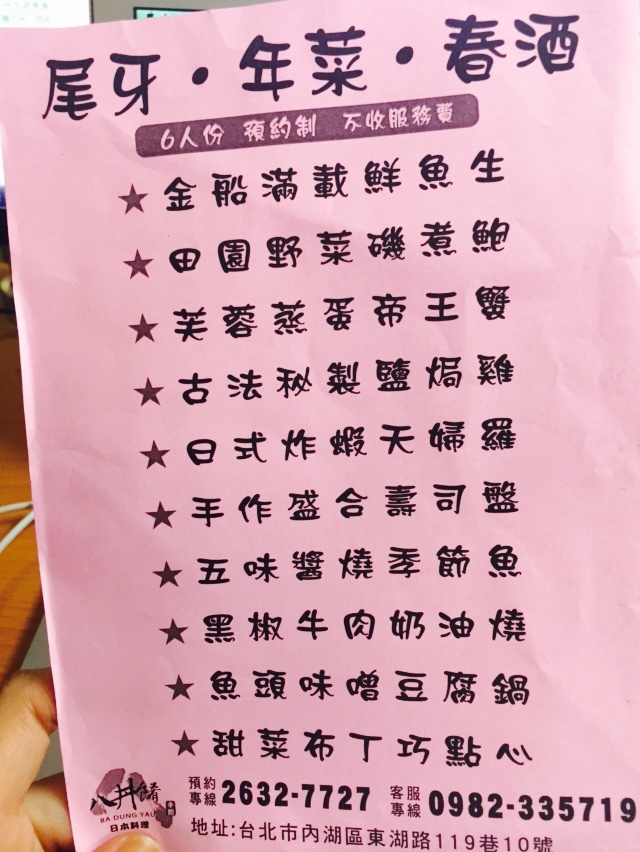 尾牙・年菜・春酒
6人份 預約制 不收服務費
★金船滿載鮮魚生
★田園野菜磯煮鮑
★芙蓉蒸蛋帝王蟹
★古法秘製鹽焗雞
★日式炸蝦天婦羅
★手作盛合壽司盤
★五味醬燒季節魚
★黑椒牛肉奶油燒
★魚頭味噌豆腐鍋
★甜菜布丁巧點心
八井餚
BA DUNG YAU
日本料理
預約專線 2632-7727 客服專線 0982-335719
地址:台北市內湖區東湖路119巷10號